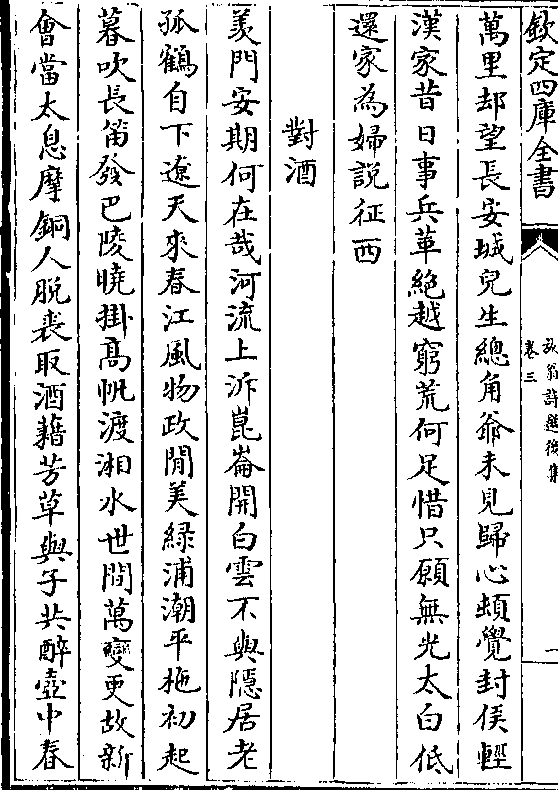 欽定四庫全書
放翁詩選後集
卷三
一
萬里却望長安城兒生總角爺未見歸心頓覺封侯輕
漢家昔日事兵革絶越窮荒何足惜只願無光太白低
還家為婦説征西
對酒
羡門安期何在哉河流上泝崑崙開白雲不與隱居老
孤鶴自下遼天來春江風物政閒美緑浦潮平柂初起
暮吹長笛發巴陵曉掛髙帆渡湘水世間萬變更故新
會當太息摩銅人脱裘取酒藉芳草與子共醉壺中春